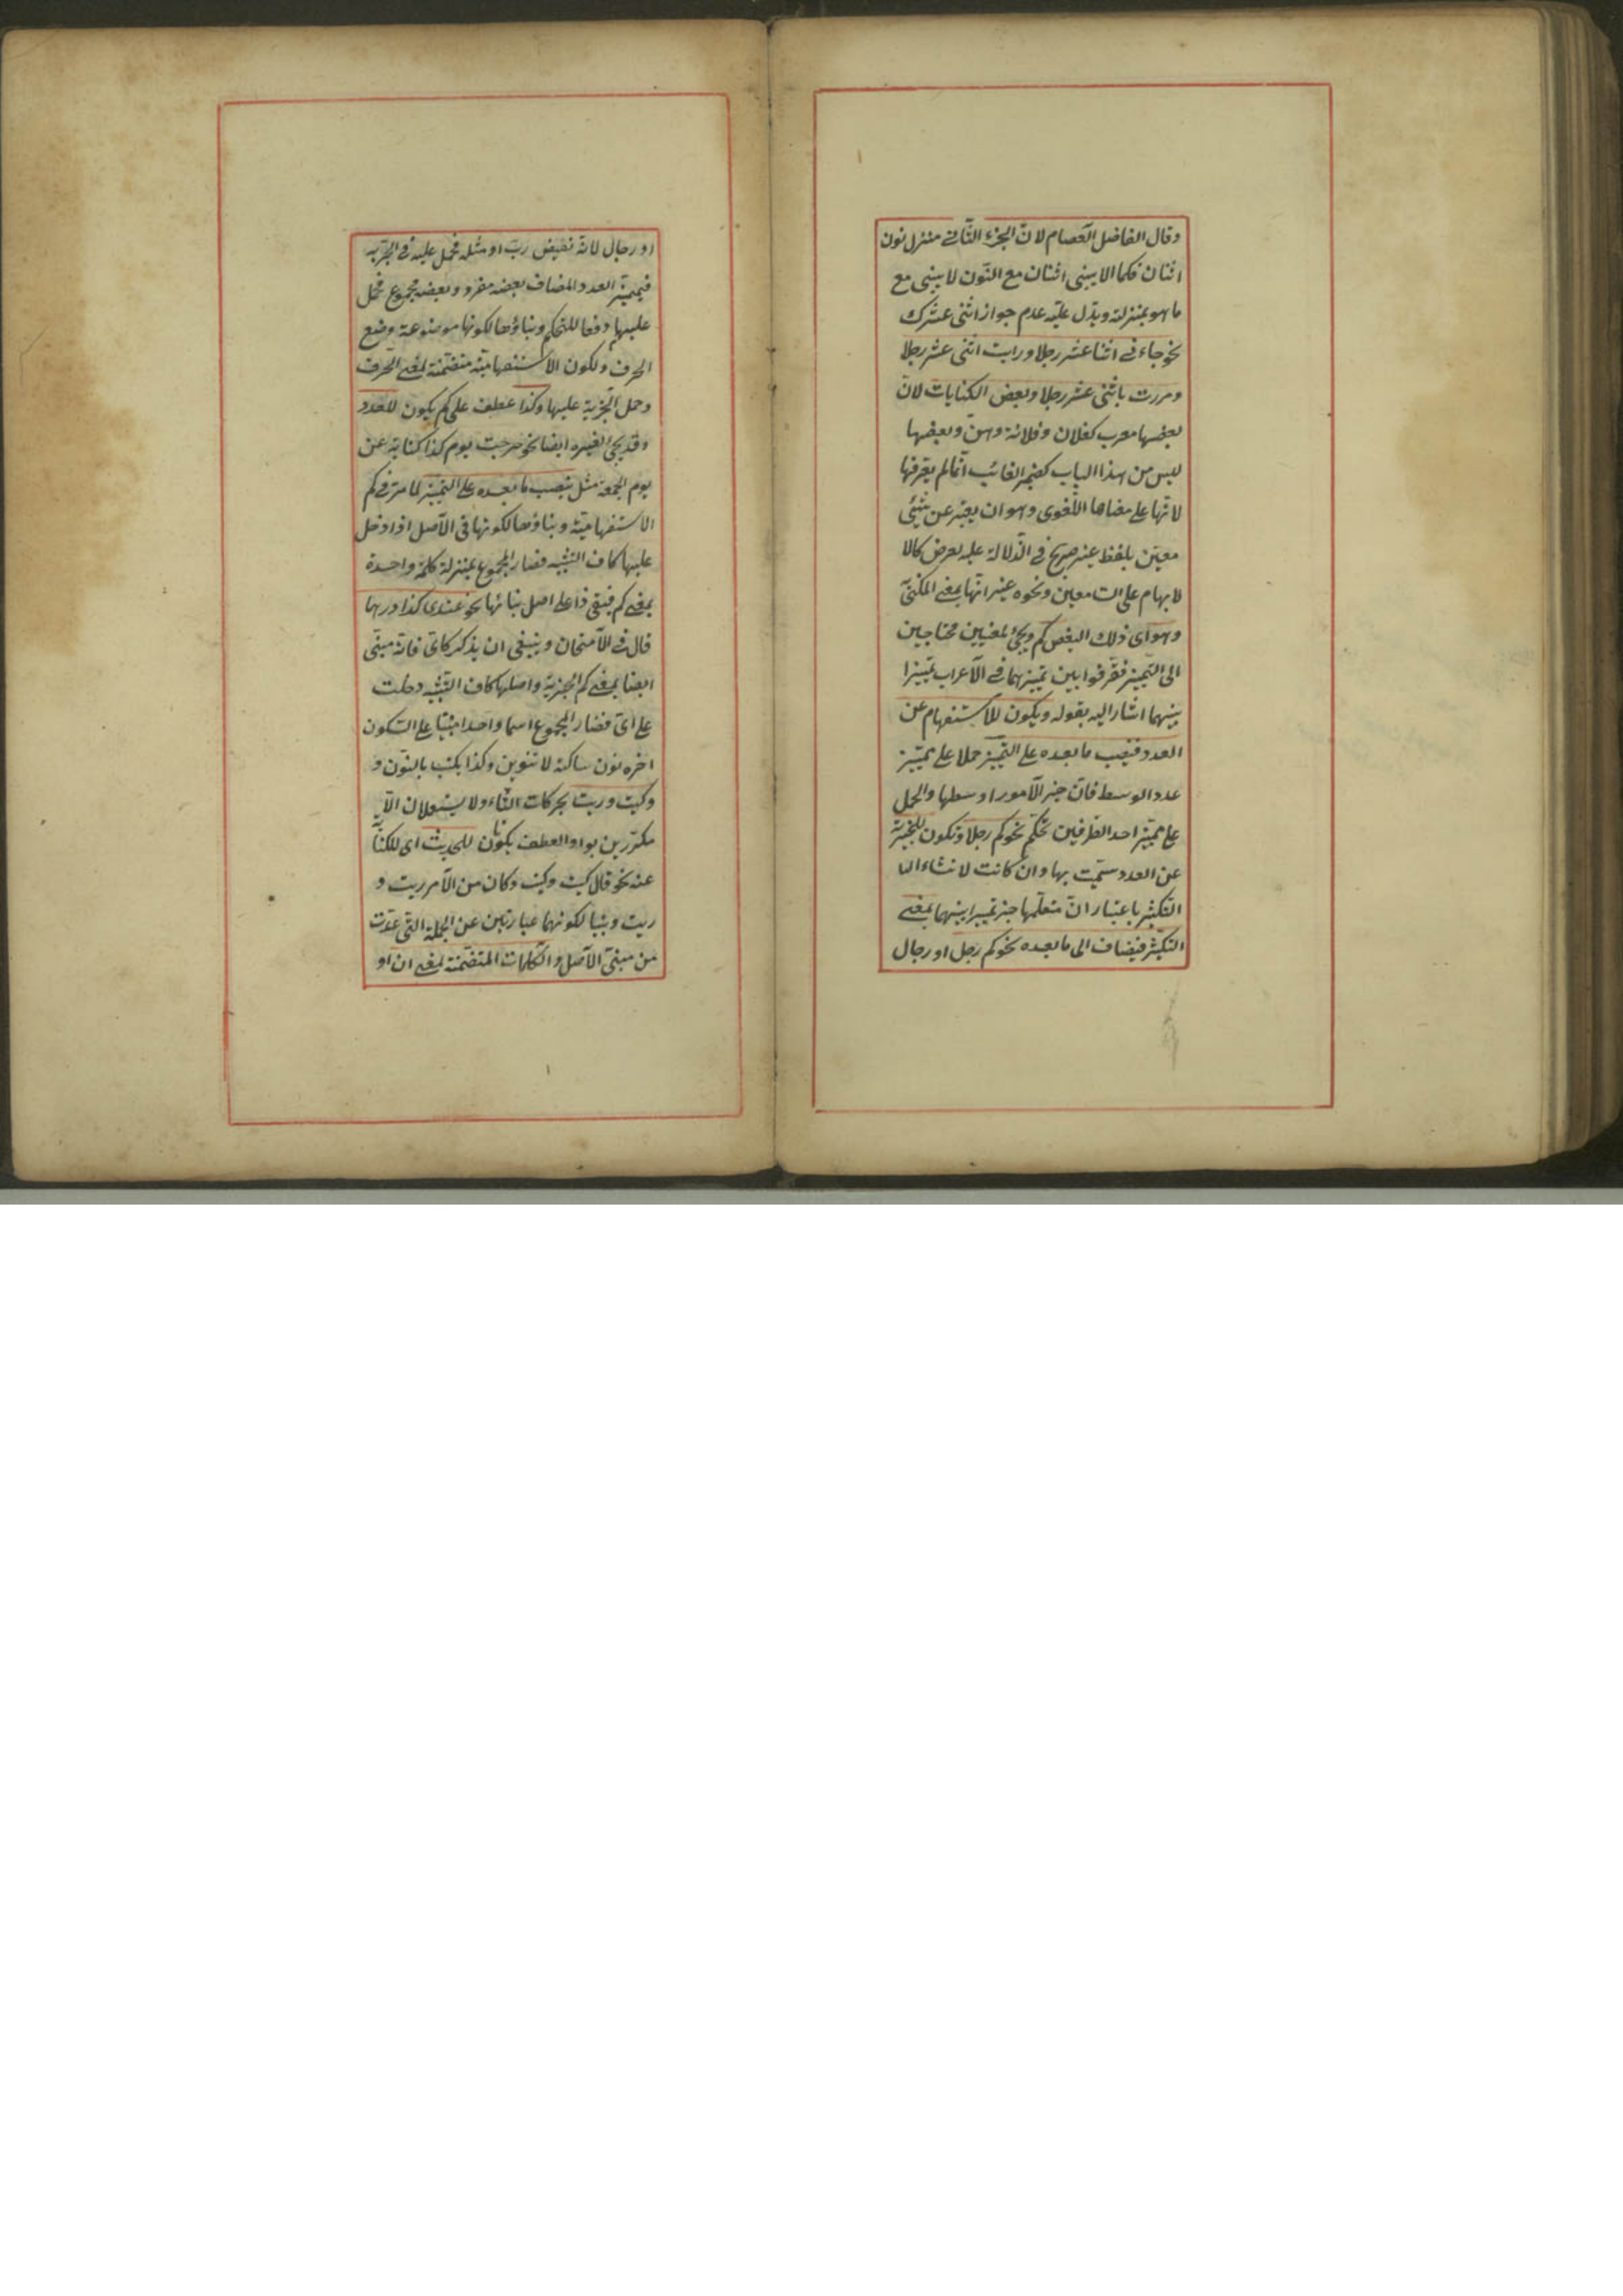 وقال الفاضل العصام لانّ الجزء الثّاني منزل نون
اثنان فكما لا يبنى اثنان مع النّون لا يبنى مع
ما هو بمنزلته ويدل عليه عدم جواز اثنى عشرك
نحو جاءني اثنا عشر رجلا ورايت اثنى عشر رجلا
ومررت باثنى عشر رجلا وبعض الكنايات لانّ
بعضها معرب كفلان وفلانة وهن وبعضها
ليس من هذا الباب كضمير الغائب انّما لم يعرفها
لانّها على معناها اللّغوى وهو ان يعبّر عن شيئ
معيّن بلفظ غير صريح في الدّلالة عليه لغرض كالا
لابهام على السامعين ونحوه غير انّها بمعنى المكنّى
وهو اى ذلك البعض كم ويجئ لمعنيين محتاجين
الى التّميز ففرّقوا بين تميزهما في الاعراب تمييزا
بينهما اشار اليه بقوله ويكون للاستفهام عن
العدد فينصب ما بعده على التّميز حملا على مميّز
عدد الوسط فانّ خير الامور اوسطها والحمل
على مميّز احد الطّرفين تحكّم نحو كم رجلا وتكون للخبريّة
عن العدد سمّيت بها وان كانت لانشاء الـ
التكثير باعتبار انّ متعلّمها خبر تمييرا بينهما بمعنى
التكثير فيضاف الى ما بعده نحو كم رجل او رجال
او رجال لانّه نقيض ربّ او مثله فحمل عليه في الجرّ به
فمميّز العدد المضاف بعضه مفرد وبعضه مجموع فحمل
عليهما دفعا للتحكم وبناؤها لكونها موضوعة وضع
الحرف ولكون الاستفهاميّة متضمّنة لمعنى الحرف
وحمل الخبرية عليها وكذا عطف على كم يكون للعدد
وقد يجئ لغيره ايضا نحو خرجت يوم كذا كناية عن
يوم الجمعة مثل ينصب ما بعده على التميز لما مرّ في كم
الاستفهاميّة وبناؤها لكونها في الاصل اذا دخل
عليها كاف التشبيه فصار المجموع بمنزلة كلمة واحدة
بمعنى كم فبقى ذا على اصل بنائها نحو عندى كذا درهما
قال في الامتحان وينبغى ان يذكر كاىّ فانّه مبنّى
ايضا بمعنى كم الخبريّة واصلها كاف التّشبيه دخلت
على اىّ فصار المجموع اسما واحدا مبنيّا على السكون
اخره نون ساكنة لا تنوين وكذا يكتب بالنّون و
وكيت وزيت بحركات الثّاء ولا يستعملان الّا
مكرّرين بواو العطف يكونان للحديث اى للكناية
عنه نحو قال كيت وكيت وكان من الامر زيت و
زيت وبنيا لكونهما عبارتين عن الجملة التى عدّت
من مبنّى الاصل والكلمات المتضمّنة لمعنى ان او